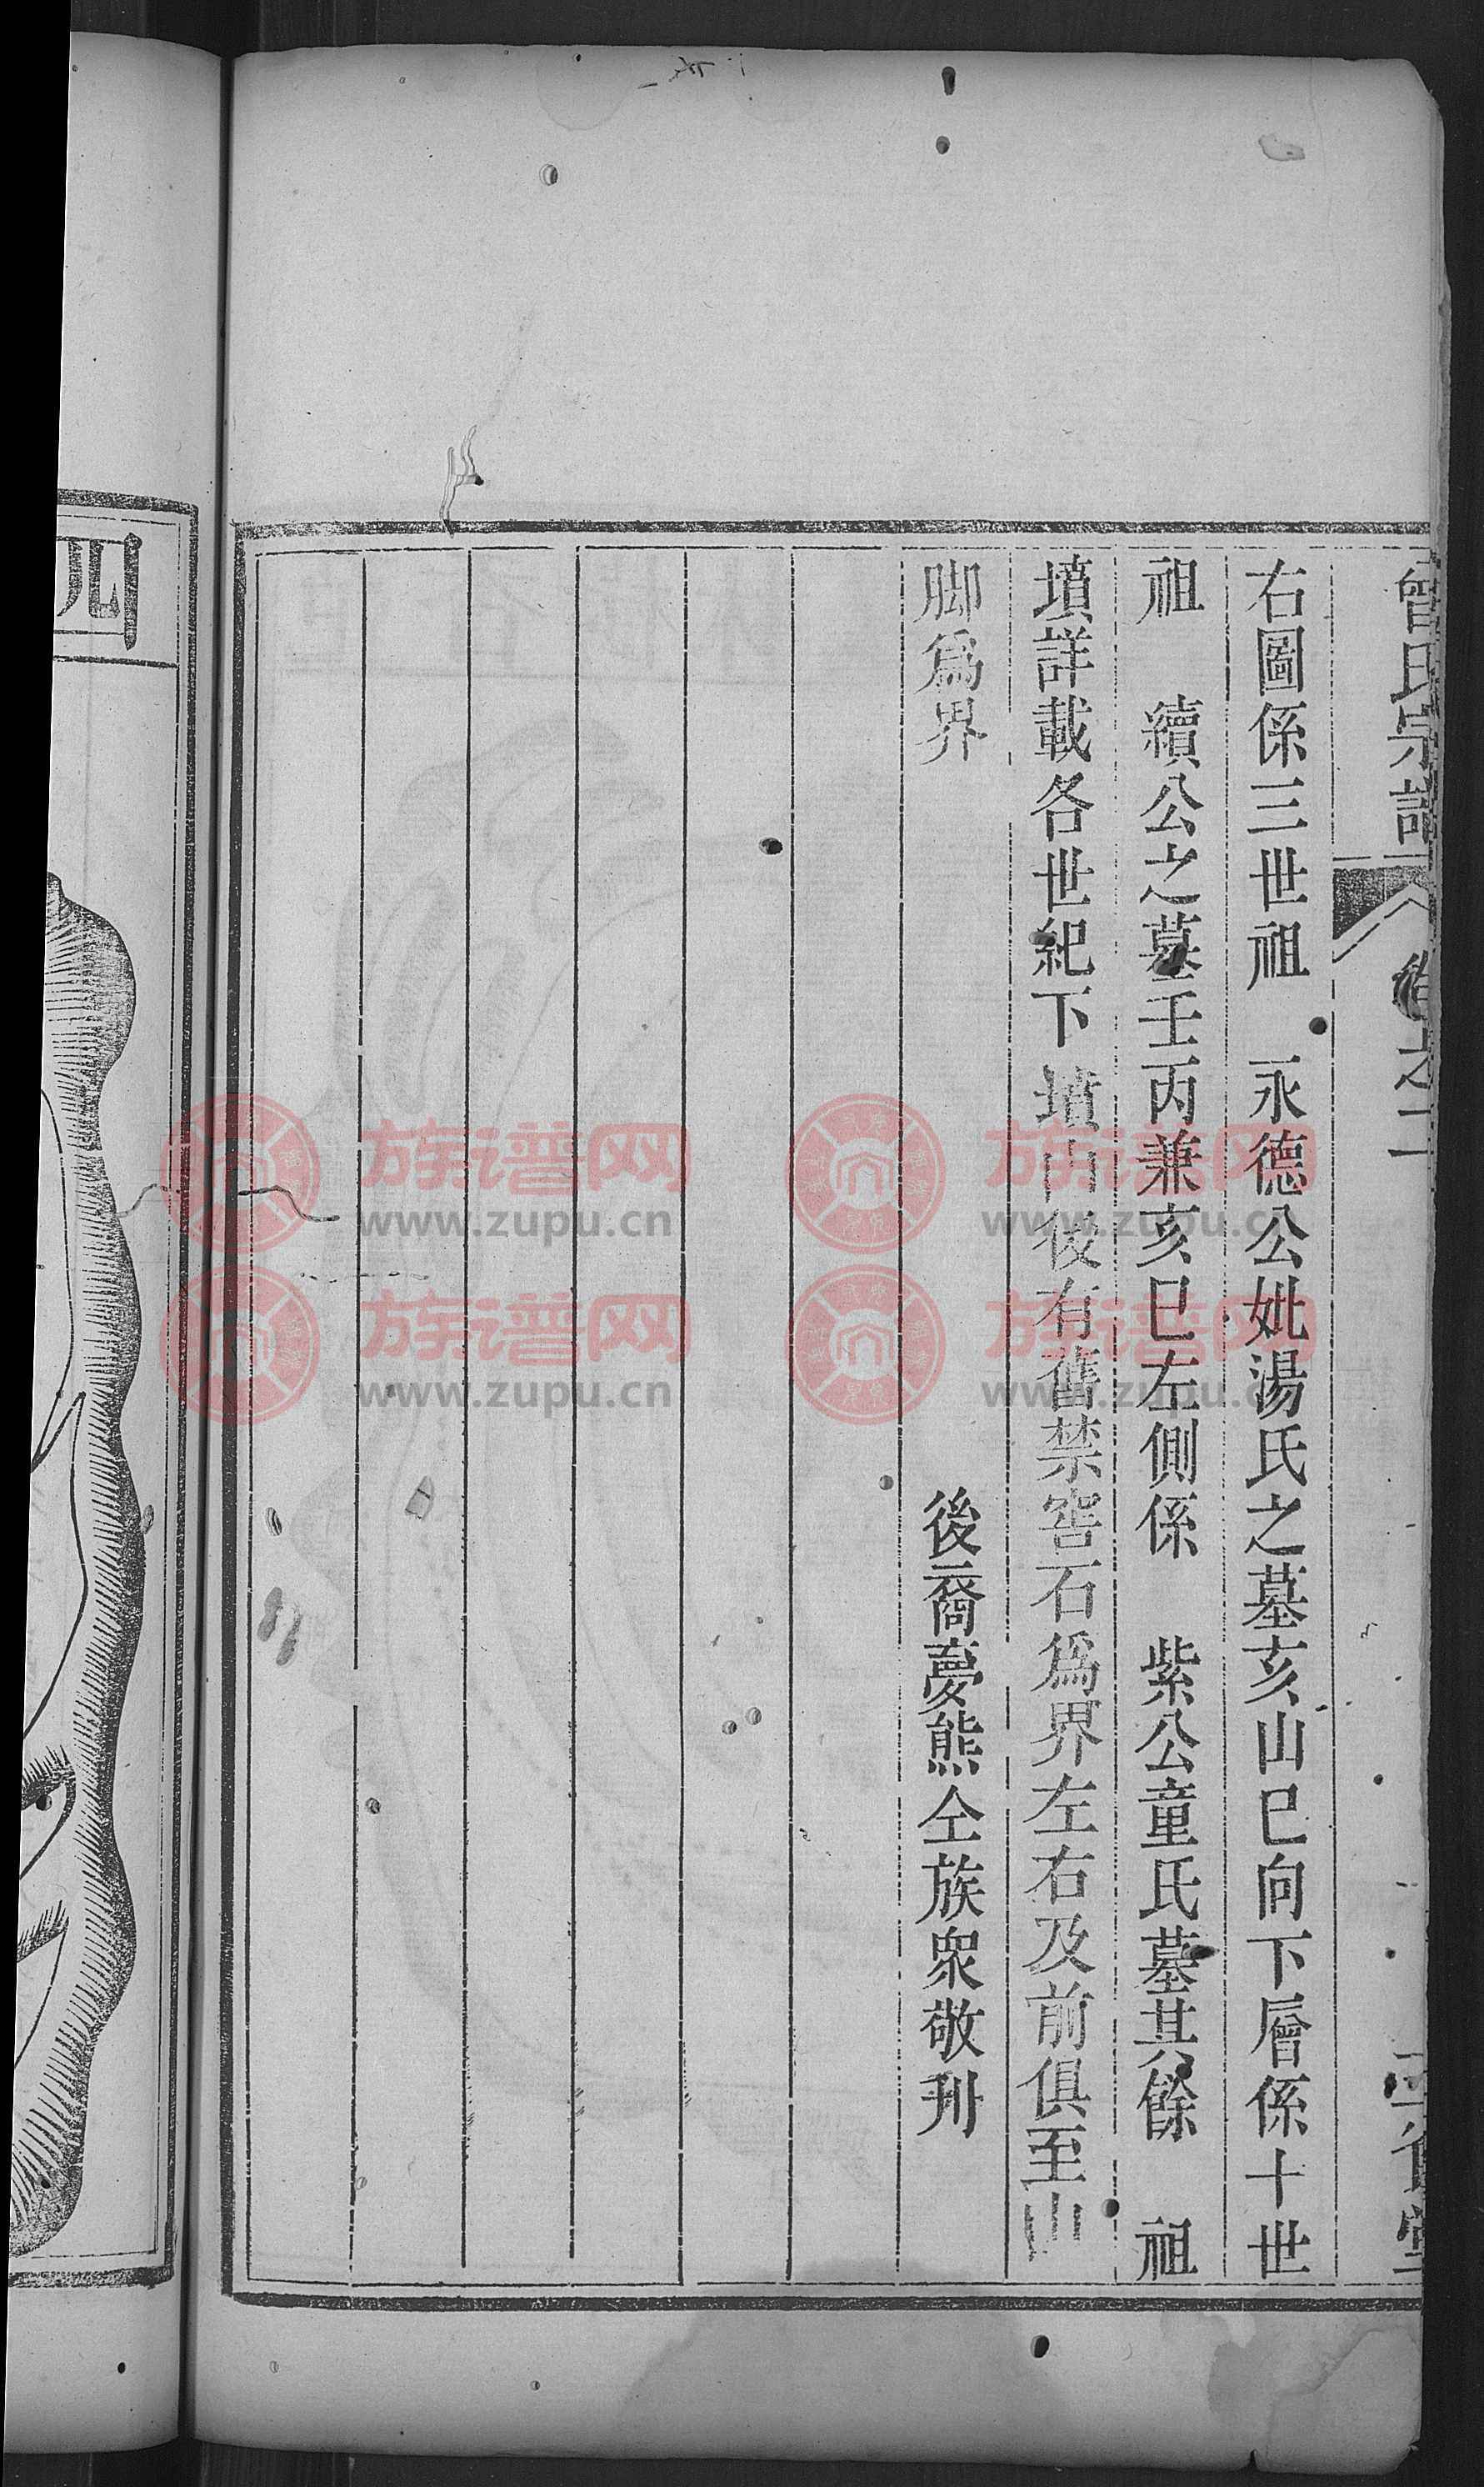 曾氏宗譜
卷之二
右圖係三世祖　永德公妣湯氏之墓亥山巳向下層係十世
祖　續公之墓壬丙兼亥巳左側係　紫公童氏墓其餘　祖
墳詳載各世紀下墳山後有舊禁窖石為界左右及前俱至山
脚為界　後裔夢熊仝族衆敬刋
四
族谱网
www.zupu.cn
族谱网
www.zupu.cn
族谱网
www.zupu.cn
族谱网
www.zupu.cn